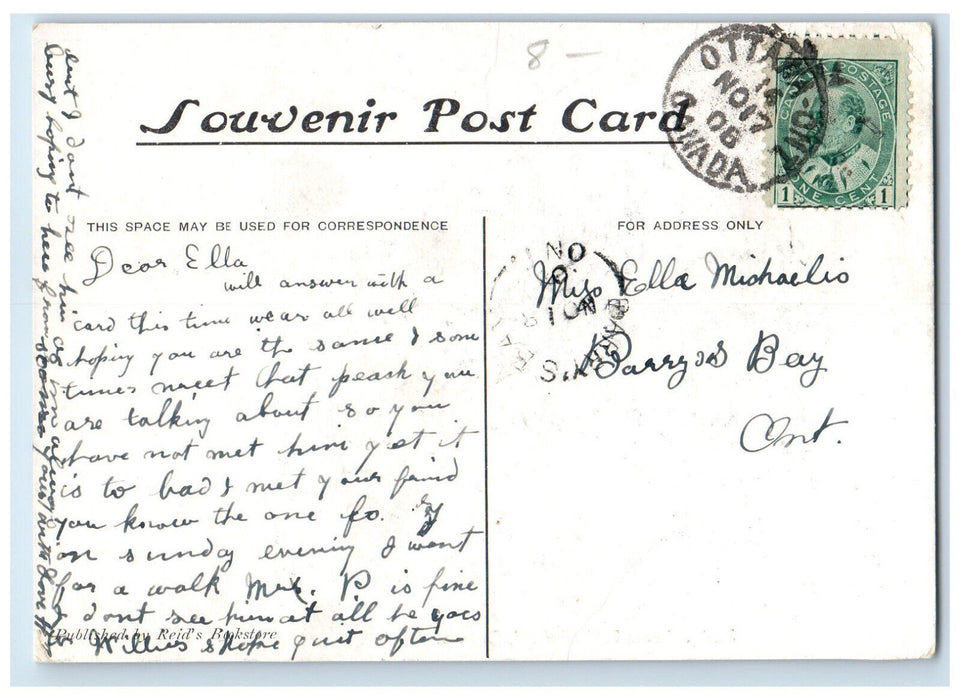 8-
Souvenir Post Card
OTTAWA ONT.
NO 17
08
CANADA
CANADA POSTAGE
1 ONE CENT 1
THIS SPACE MAY BE USED FOR CORRESPONDENCE
FOR ADDRESS ONLY
Dear Ella
will answer with a
card this time we are all well
hoping you are the same I som
times meet that peash you
are talking about so you
have not met him yet it
is to bad I met your
you know the one fo.
on sunday evening I went
for a walk Mrs. P is fine
I dont see him at all he goes
Willies home quit often
but I dont see him as im always
busy hoping to here from soon
Published by Reid's Bookstore
NO
BARRY'S BAY
Miss Ella Michaelis
Barrys Bay
Ont.